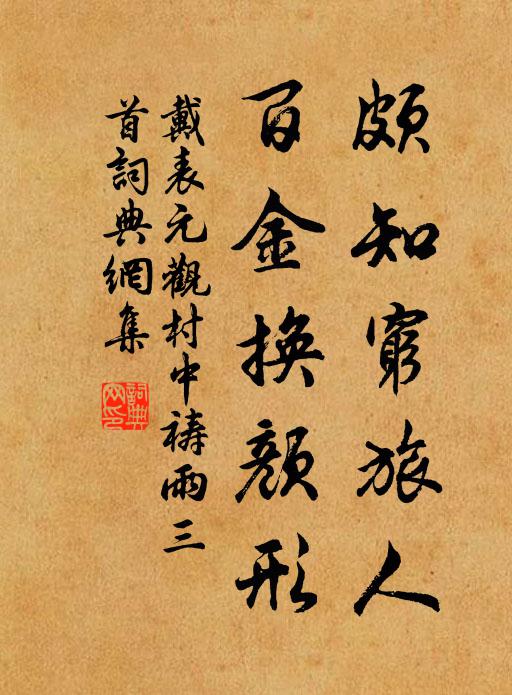 頗知窮旅人
百金換顏形
戴表元觀村中禱雨三
首詞典網集
詞典
网印